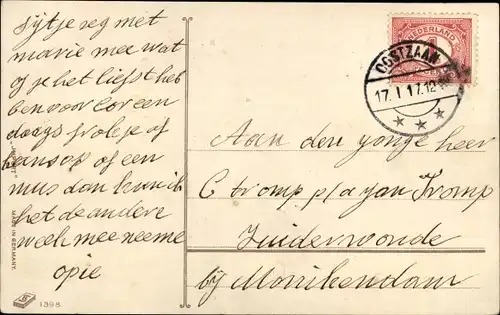 sijtje zeg met
marie mee wat
of je het liefst heb
ben voor Cor een
daags frolyp of
hansop of een
mus dan kun ik
het de andere
week mee neeme
opie
MADE IN GERMANY.
1398
NEDERLAND
OOSTZAAN
17.1.17.12
Aan den yonge heer
C tromp pla yan Tromp
Zuiderwoude
bij Monikendam